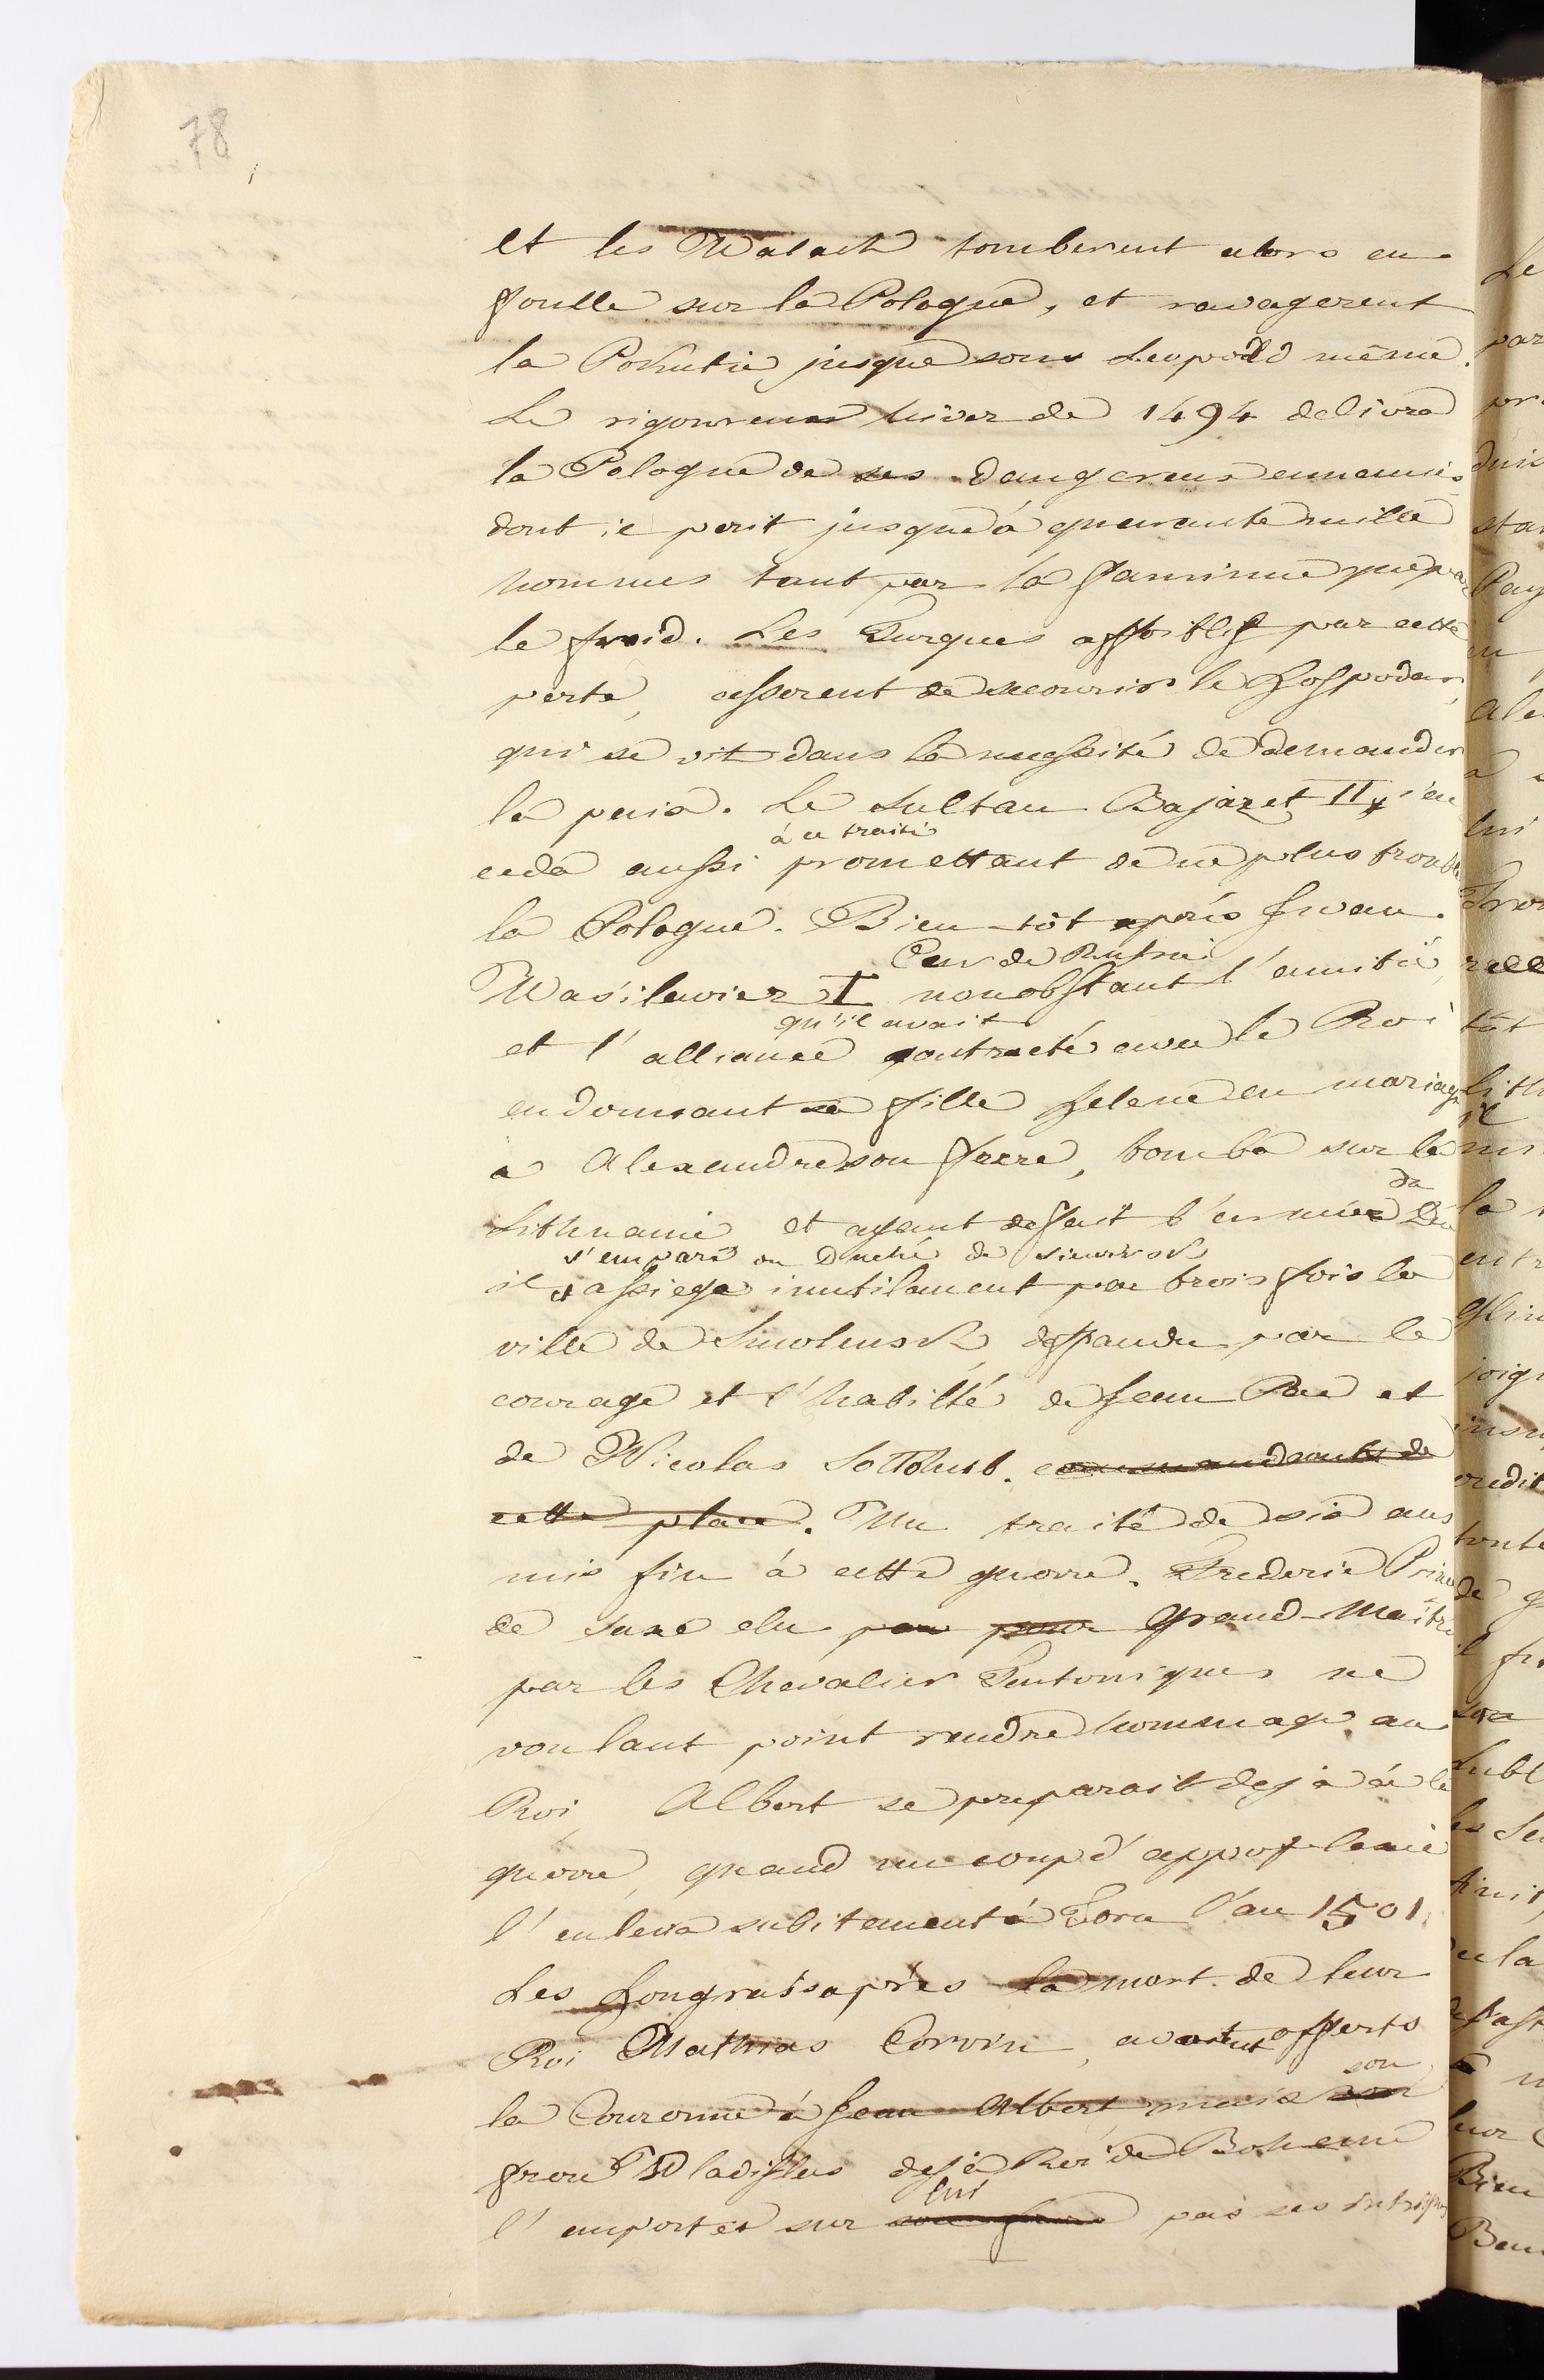 78
et les Walach tomberent alors en
foulle sur la Pologne, et ravagerent
la Pokutie jusque sous Leopold même.
Le rigoureux hiver de 1494 delivra
la Pologne de ses dangereux ennemis
dont il perit jusqu'à quarante mille
hommes tant par la famine que par
le froid. Les Turques affoiblis par cette
perte, cesserent de secourir le Hospodar,
qui se vit dans la nessité de demander
la paix. Le Sultan Bajazet II
à ce traité
ceda aussi promettant de ne plus trouble
la Pologne. Bien-tôt après Iwan
Czar de Russie
Wasilewicz I nonobstant l'amitié
qu'il avait
et l'alliance contracté avec le Roi
en donnant sa fille Helene en mariage
a Alexandre son frere, tomba sur la
Lithuanie et ayant defait l'armée
s'empara du Duché de Siewirsk
il assiega inutilement par trois fois la
ville de Smolensk deffandu par le
courage et l'habilté de Jean Pac et
de Nicolas Sottohub. commandants de
cette place. Un traité de six ans
mis fin à cette guerre. Frederic Prince
de Saxe elu par pour Grand-Maitre
par les Chevalier Teutoniques ne
voulant point rendre hommage au
Roi, Albert se preparait deja à la
guerre, quand un coup d'appoplexie
l'enleva subitement à Torn l'an 1501.
Les Hongrais après la mort de leur
Roi Mathias Corvin, avaient offerts
son
la Couronne à Jean Albert mais son
frere Wladislas deja Roi de Boheme
lui
l'emporter sur son frere par ses intrigues